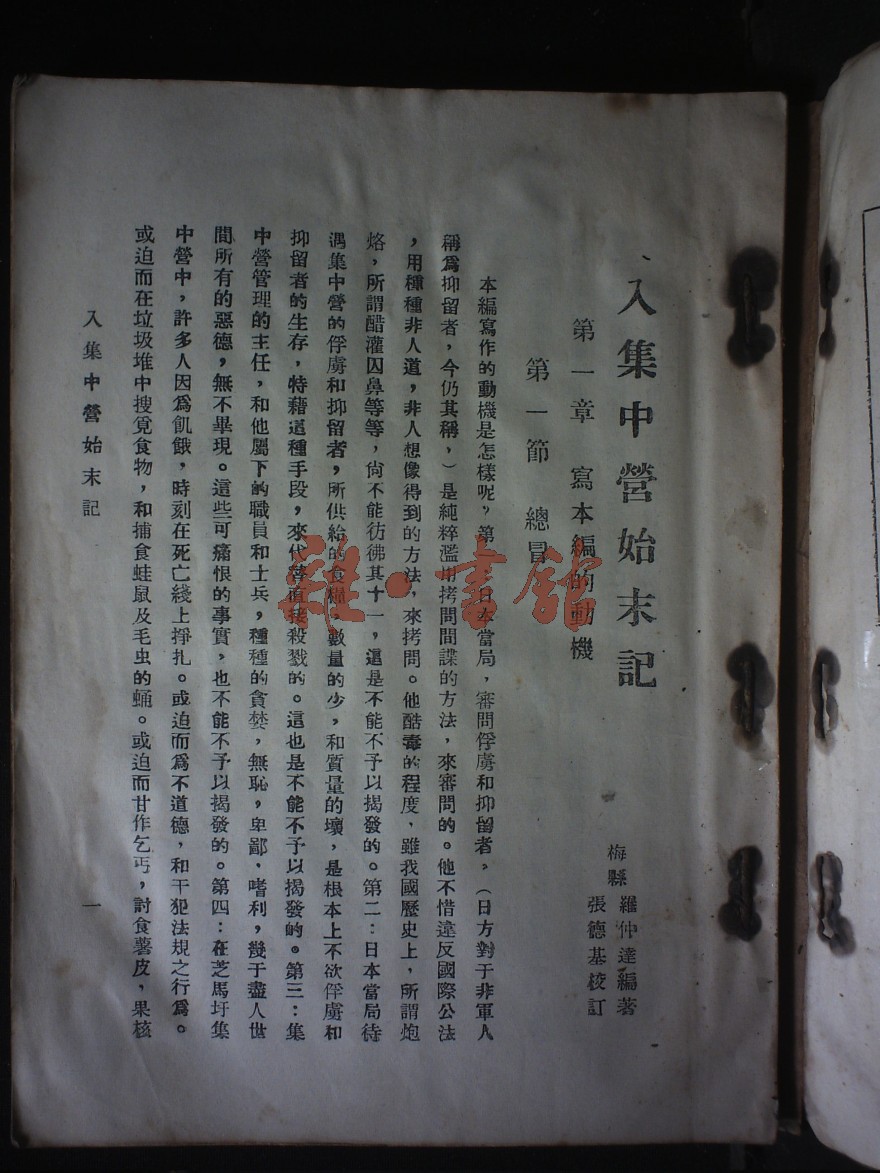 入集中營始末記
梅縣 羅仲達編著
張德基校訂
第一章 寫本編的動機
第一節 總冒
本編寫作的動機是怎樣呢?第一:日本當局,審問俘虜和抑留者,(日方對于非軍人
稱爲抑留者,今仍其稱,)是純粹濫用拷問間諜的方法,來審問的。他不惜違反國際公法
,用種種非人道,非人想像得到的方法,來拷問。他酷毒的程度,雖我國歷史上,所謂炮
烙,所謂醋灌囚鼻等等,尙不能彷彿其十一,這是不能不予以揭發的。第二:日本當局待
遇集中營的俘虜和抑留者,所供給的食糧,數量的少,和質量的壞,是根本上不欲俘虜和
抑留者的生存,特藉這種手段,來代替直接殺戮的。這也是不能不予以揭發的。第三:集
中營管理的主任,和他屬下的職員和士兵,種種的貪婪,無恥,卑鄙,嗜利,幾于盡人世
間所有的惡德,無不畢現。這些可痛恨的事實,也不能不予以揭發的。第四:在芝馬圩集
中營中,許多人因爲飢餓,時刻在死亡綫上掙扎。或迫而爲不道德,和干犯法規之行爲。
或迫而在垃圾堆中搜覓食物,和捕食蛙鼠及毛虫的蛹。或迫而甘作乞丐,討食薯皮,果核
入集中營始末記
一
雜·書館